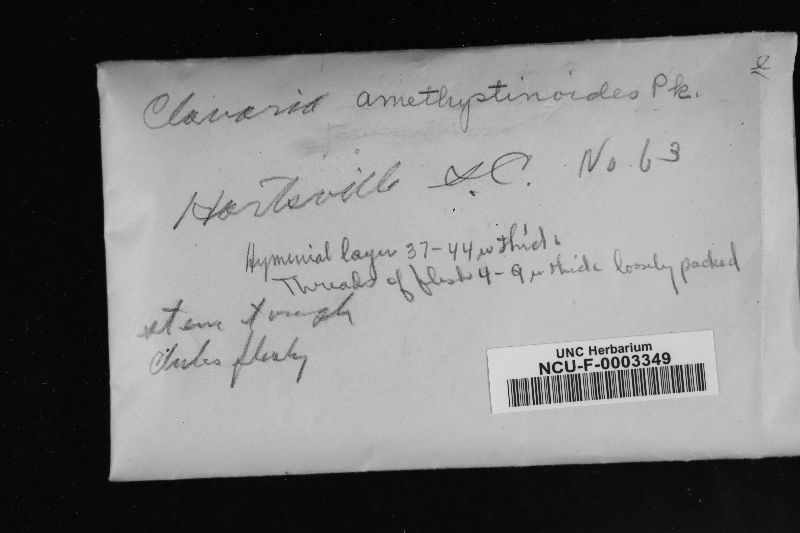 Clavaria amethystinoides Pk.
Hartsville S.C. No. 63
Hymenial layer 37-44 µ thick
Threads of flesh 4-9 µ thick loosely packed
stem tough
Clubs fleshy
UNC Herbarium
NCU-F-0003349